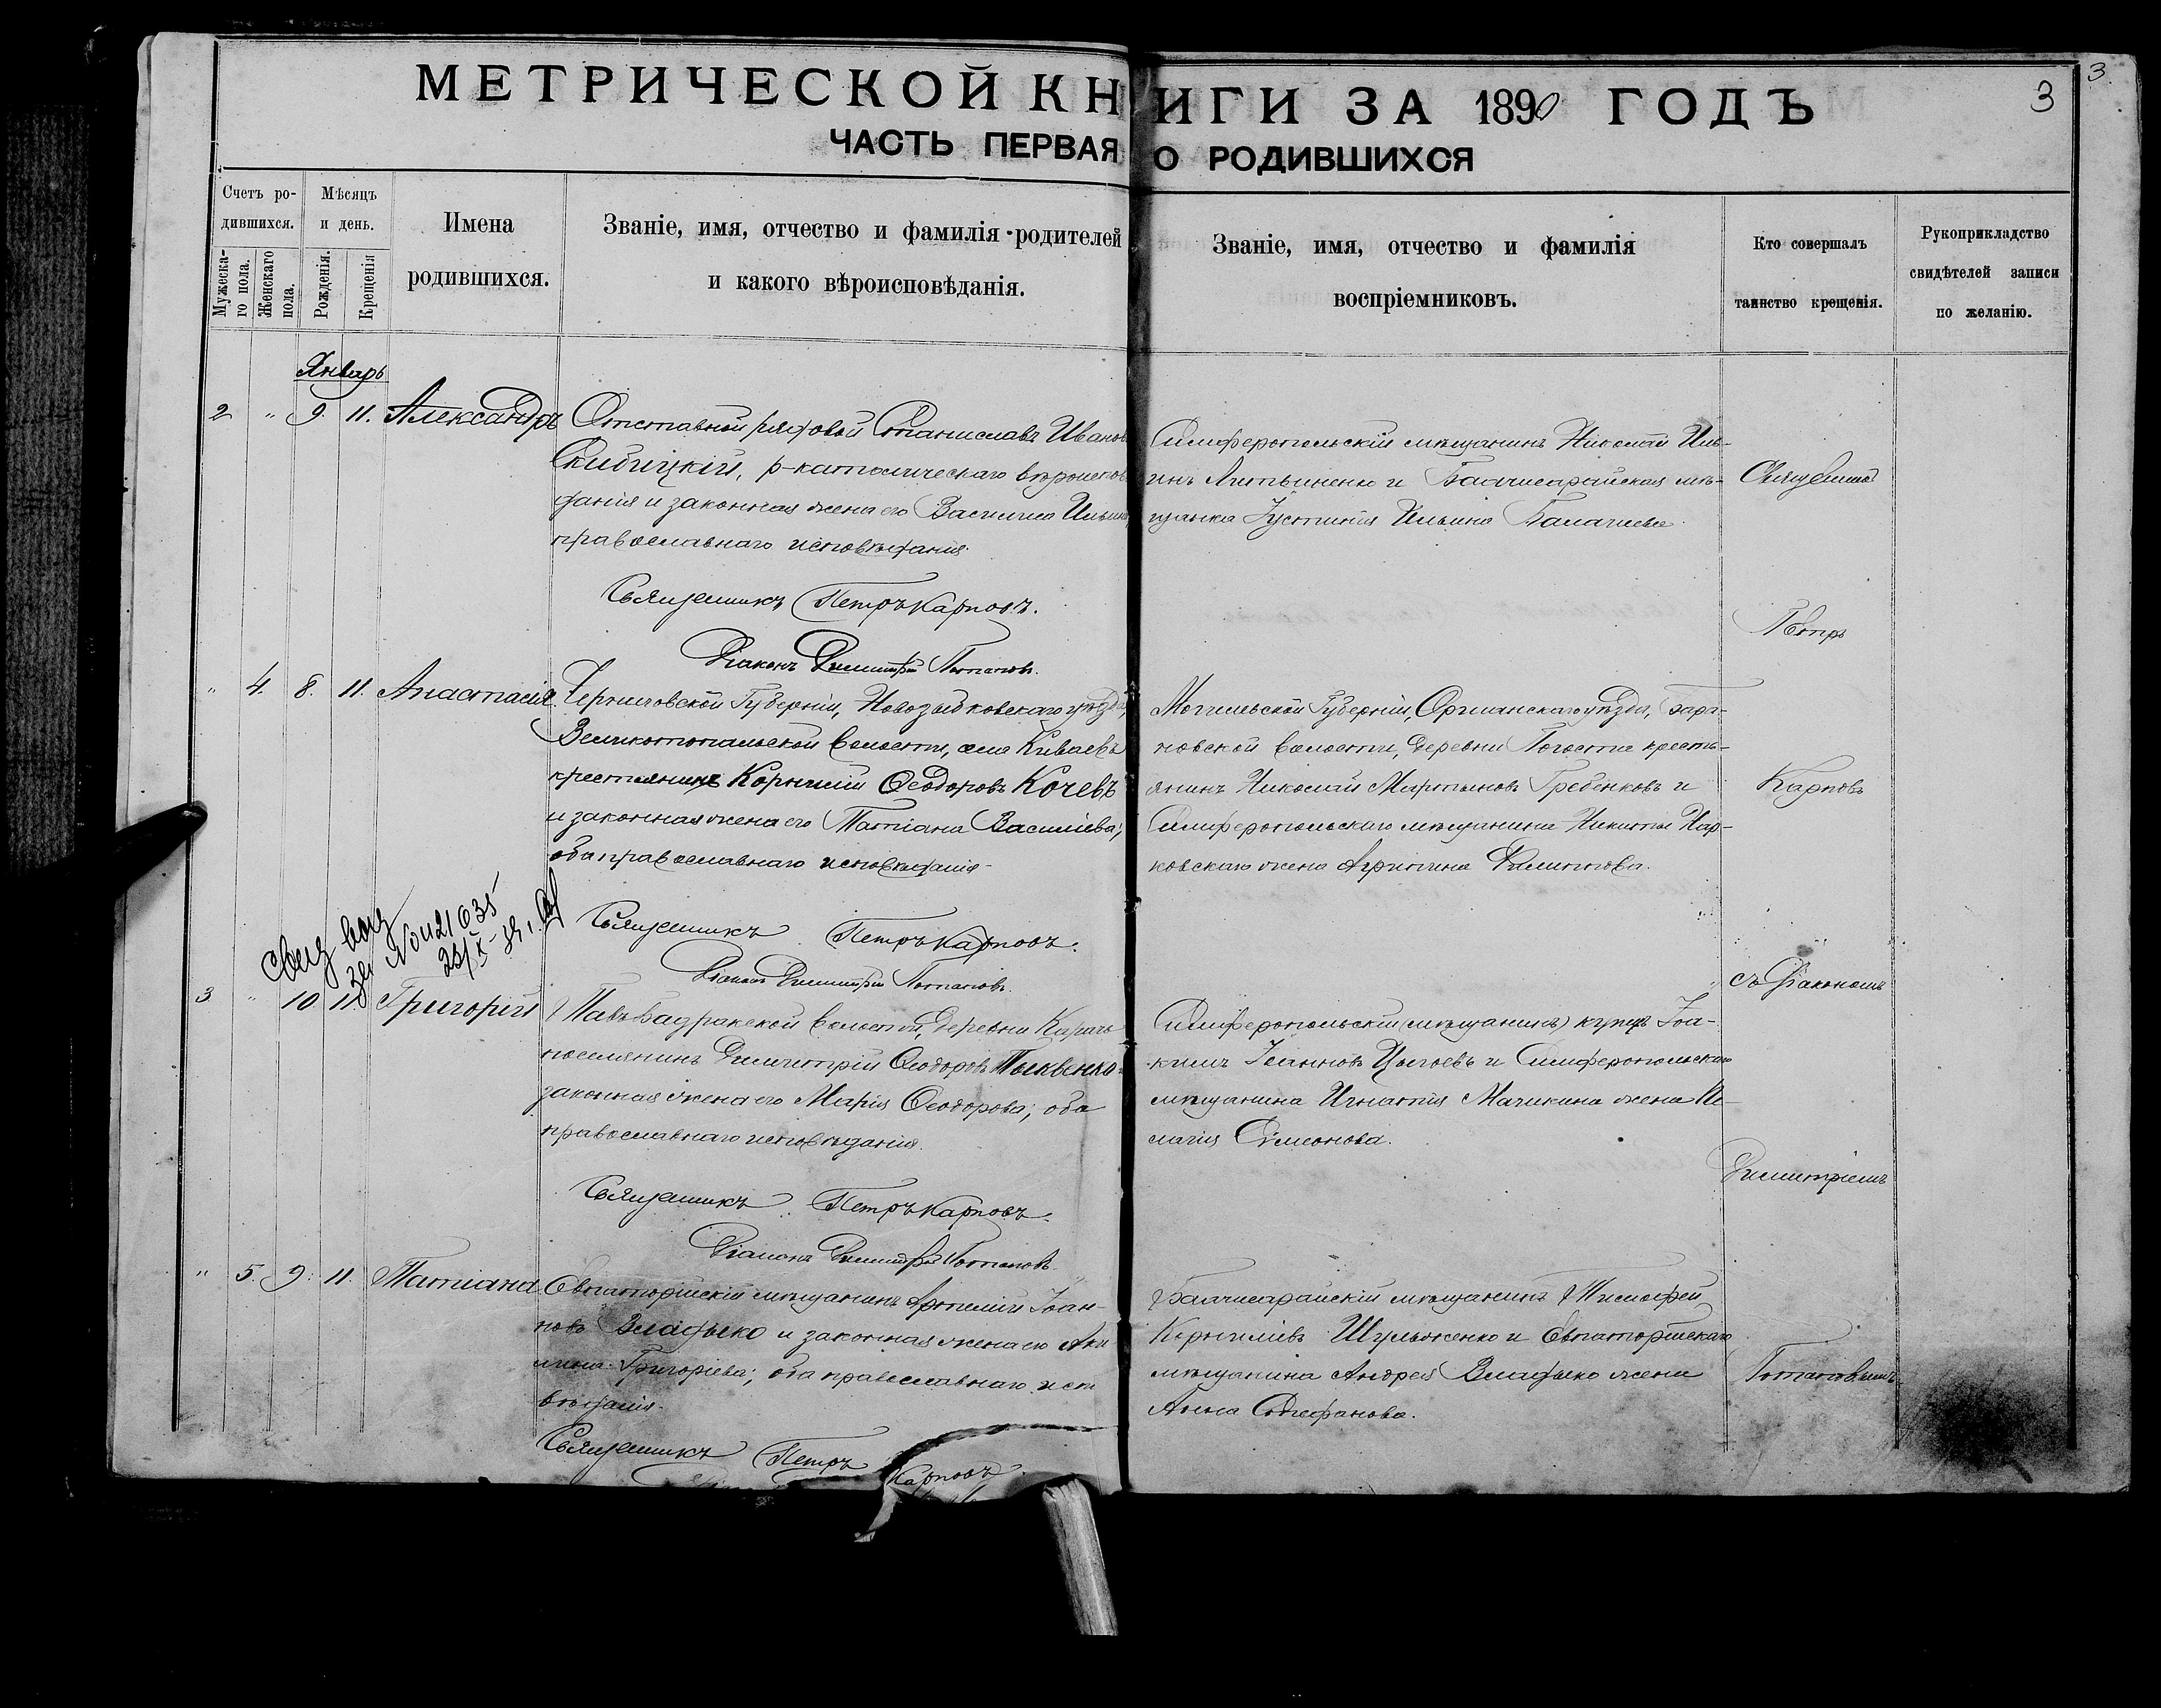 МЕТРИЧЕСКОЙ КНИГИ ЗА 1890 ГОДЪ
3
3.
ЧАСТЬ ПЕРВАЯ О РОДИВШИХСЯ
Счетъ ро-
дившихся.
Мужеска-
го пола.
Женскаго
пола.
Мѣсяцъ
и день.
Рожденія.
Крещенія
Имена
родившихся.
Званіе, имя, отчество и фамилія родителей
и какого вѣроисповѣданія.
Званіе, имя, отчество и фамилія
воспріемниковъ.
Кто совершалъ
таинство крещенія.
Рукоприкладство
свидѣтелей записи
по желанію.
Январь
2 " 9. 11. Александръ
Отставной рядовой Станиславъ Иванов
Скибицкій, р-католическаго вѣроиспов
данія и законная жена его Василиса Ильина,
православнаго исповѣданія.
Священникъ Петръ Карповъ.
Діаконъ Димитрій Потаповъ.
Симферопольскій мѣщанинъ Николай Иль-
инъ Литвиненко и Бахчисарайская мѣ-
щанка Іустинія Ильина
" 4. 8. 11. Анастасія.
Черниговской Губерніи, Новозыбковскаго уѣзда,
Великотопальской волости, села Киваевъ
крестьянинъ Корнилій Ѳеодоровъ Кочевъ
и законная жена его Татіана Василіева;
оба православнаго исповѣданія.
Священникъ Петръ Карповъ.
Діаконъ Димитрій Потаповъ.
Могилевской Губерніи, Оршанскаго уѣзда, Бара-
новской волости, деревни Погостья кресть-
янинъ Николай Мартыновъ Гребенковъ и
Симферопольскаго мѣщанина Никиты Хар-
ковскаго жена Агрипина Филиппова.
№ 021635
3 " 10. 11. Григорій
волости, деревни Карачъ
поселянинъ Димитрій Ѳеодоровъ Тыквенко
законная жена его Марія Ѳеодорова; оба
православнаго исповѣданія.
Священникъ Петръ Карповъ.
Діаконъ Димитрій Потаповъ
Симферопольскій (мѣщанинъ) купецъ Іоа-
кимъ Іоанновъ и Симферопольскаго
мѣщанина Игнатія Мачикина жена Пе-
лагія Симеонова.
" 5. 9. 11. Татіана
Евпаторійскій мѣщанинъ Артемій Іоан-
новъ Владыко и законная жена его Аки
лина Григоріева; оба православнаго испо
вѣданія.
Священникъ Петръ Карповъ
Бахчисарайскій мѣщанинъ Тимофей
Корниліевъ Шульженко и Евпаторійскаго
мѣщанина Андрея Владыко жена
Анна Стефанова.
Священникъ
Петръ
Карповъ
съ Діакономъ
Димитріемъ
Потаповымъ